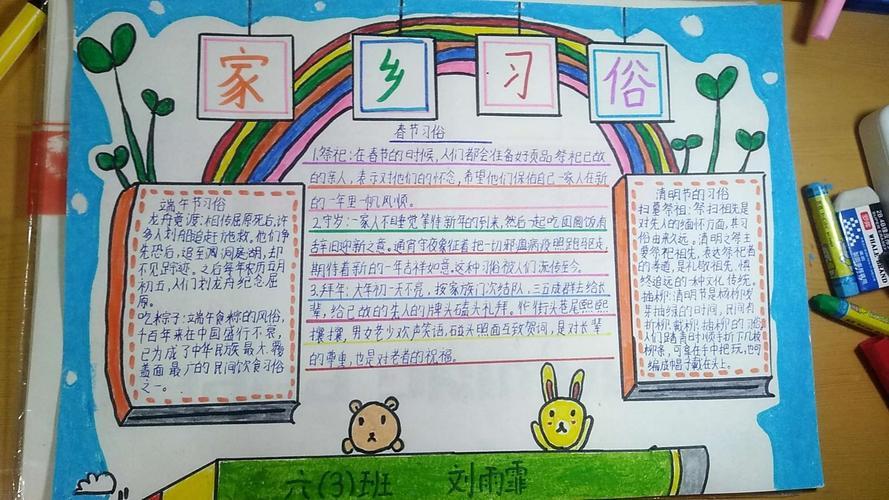 家乡习俗
端午节习俗
龙舟竞渡:相传屈原死后,许
多人划船追赶拯救。他们争
先恐后,追至洞庭湖,却
不见踪迹。之后每年农历五月
初五,人们划龙舟纪念屈
原。
吃粽子:端午食粽的风俗,
千百年来在中国盛行不衰,
已为成了中华民族最大、覆
盖面最广的民间饮食习俗
之一。
春节习俗
1.祭祀:在春节的时候,人们都会准备好贡品祭祀已故
的亲人,表示对他们的怀念,希望他们保佑自己一家人在新
的一年里一帆风顺。
2.守岁:一家人不睡觉等待新年的到来,然后一起吃团圆饭有
辞旧迎新之意。通宵守夜象征着把一切邪瘟病疫照跑驱走,
期待着新的一年吉祥如意。这种习俗被人们流传至今。
3.拜年:大年初一天不亮,按家族门次结队,三五成群去给长
辈,给已故的亲人的牌头磕头礼拜。街头巷尾熙熙
攘攘,男女老少欢声笑语,碰头照面互致贺词,是对长辈
的尊重,也是对老者的祝福。
清明节的习俗
扫墓祭祖:祭扫祖先是
对先人的缅怀方面,其习
俗由来久远。清明之祭主
要祭祀祖先,表达祭祀者
的孝道,是礼敬祖先、慎
终追远的一种文化传统。
插柳:清明节是杨柳发
芽抽绿的时间,民间有
折柳、戴柳、插柳的习俗
人们踏青时顺手折下几枝
柳条,可拿在手中把玩,也可
编成帽子戴在头上。
六(3)班 刘雨霏
WHALE BRAND